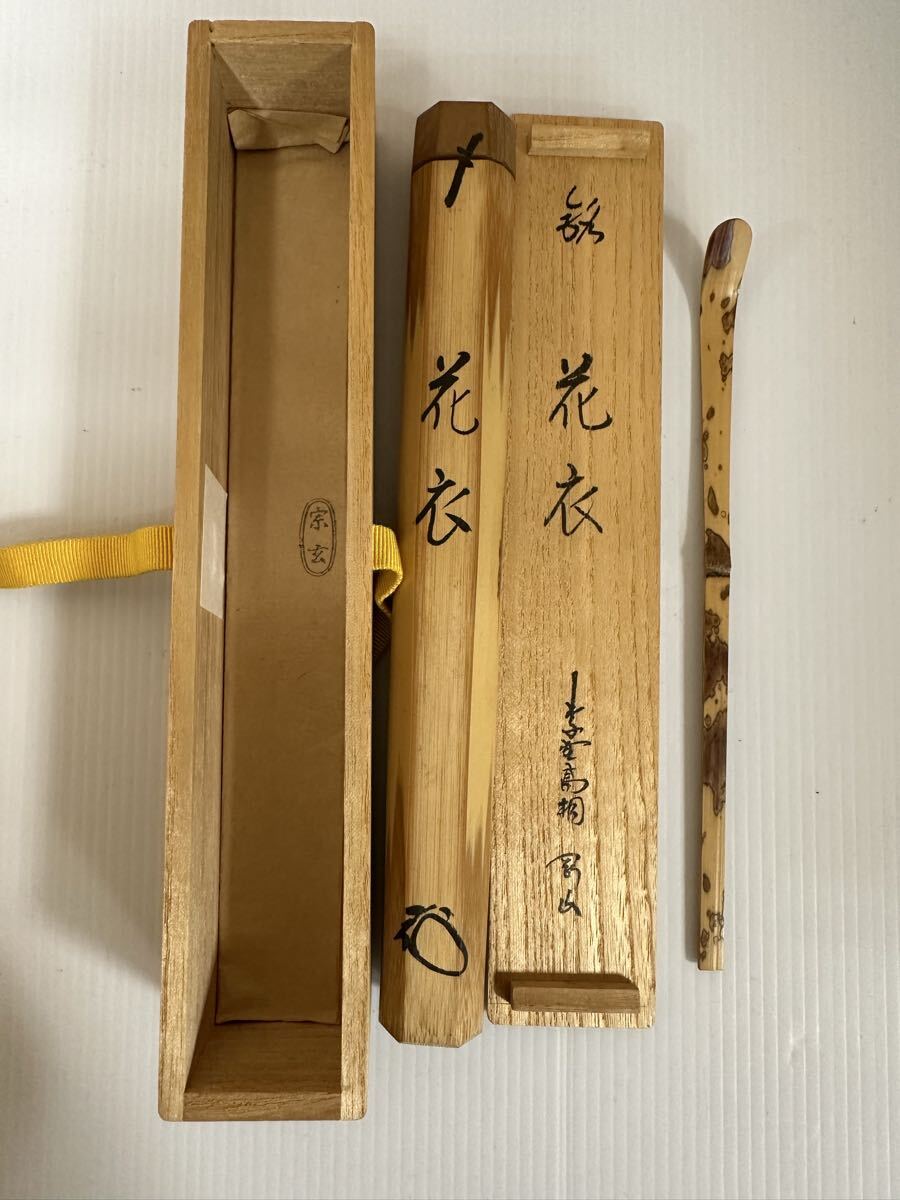 宗玄
〆
花衣
銘
花衣
高桐